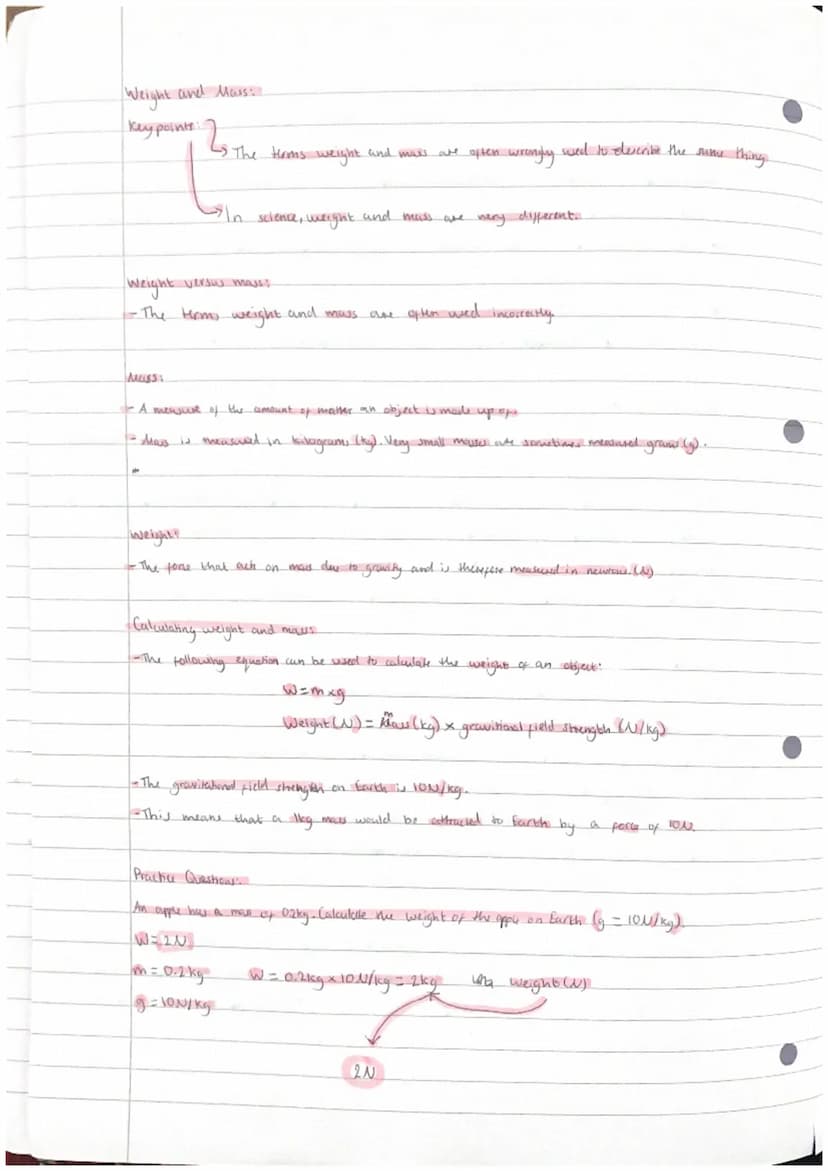 Weight and Mass:
Key points:
The terms weight and mass are often wrongly used to describe the same thing.
In science, weight and mass are very different.
Weight versus mass:
- The terms weight and mass are often used incorrectly.
Mass:
- A measure of the amount of matter an object is made up of.
- Mass is measured in kilograms (kg). Very small masses are sometimes measured grams (g).
Weight:
- The force that acts on mass due to gravity and is therefore measured in newtons. (N)
Calculating weight and mass
- The following equation can be used to calculate the weight of an object:
W = m x g
Weight (N) = mass (kg) x gravitional field strength (N/kg)
- The gravitational field strength on Earth is 10N/kg.
- This means that a 1kg mass would be attracted to Earth by a force of 10N.
Practice Questions:
An apple has a mass of 0.2kg. Calculate the weight of the apple on Earth (g = 10N/kg).
W = 2N
m = 0.2kg W = 0.2kg x 10N/kg = 2kg weight (N)
g = 10N/kg
2N